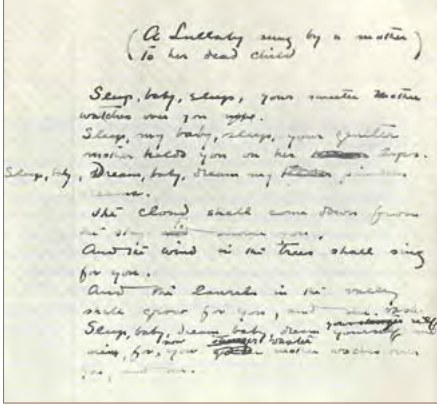 (A Lullaby sung by a mother
to her dead child)
Sleep, baby, sleep, your sweeter mother
watches over you now.
Sleep, my baby, sleep, your gentler
mother holds you on her lap.
Sleep, baby, Dream, baby, dream my
dreams.
The cloud shall come down from
the sky
And the wind in the trees shall sing
for you.
And the laurels in the valley
shall grow for you, and me.
Sleep, baby, dream, baby, dream yourself
now
for, your mother watches over
you, and me.